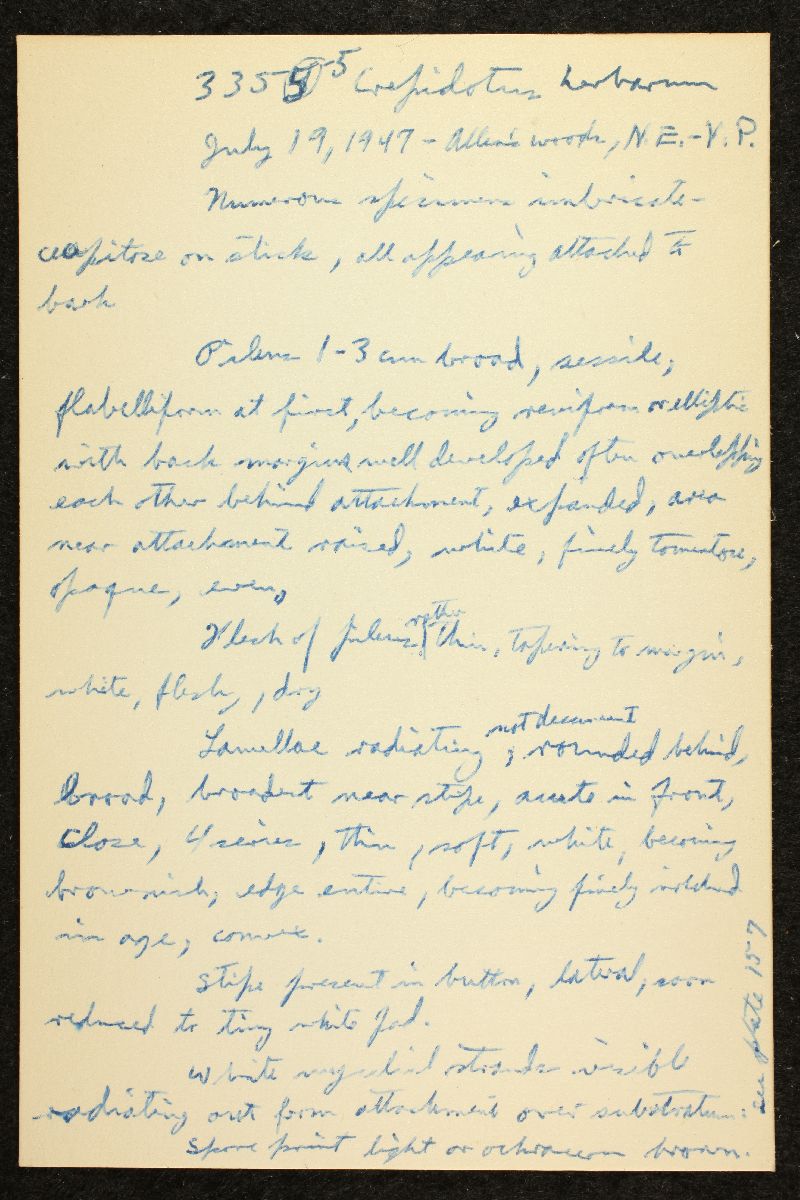 3355 Crepidotus herbarum
July 19, 1947 - Allen's woods, N.E.-V.P.
Numerous specimens imbricate-
cespitose on stick, all appearing attached to
bark
Pileus 1-3 cm broad, sessile,
flabelliform at first, becoming reniform or elliptic
with back margins well developed often overlapping
each other behind attachment, expanded, area
near attachment raised, white, finely tomentose,
opaque, even,
Flesh of pileus rather thin, tapering to margin,
white, fleshy, dry
Lamellae radiating, not decurrent, rounded behind,
broad, broadest near stipe, acute in front,
close, 4 series, thin, soft, white, becoming
brownish, edge entire, becoming finely
in age, convex.
Stipe present in button, lateral, soon
reduced to tiny white pad.
White mycelial strands visible
radiating out from attachment over substratum.
Spore print light or ochraceous brown.
See plate 157